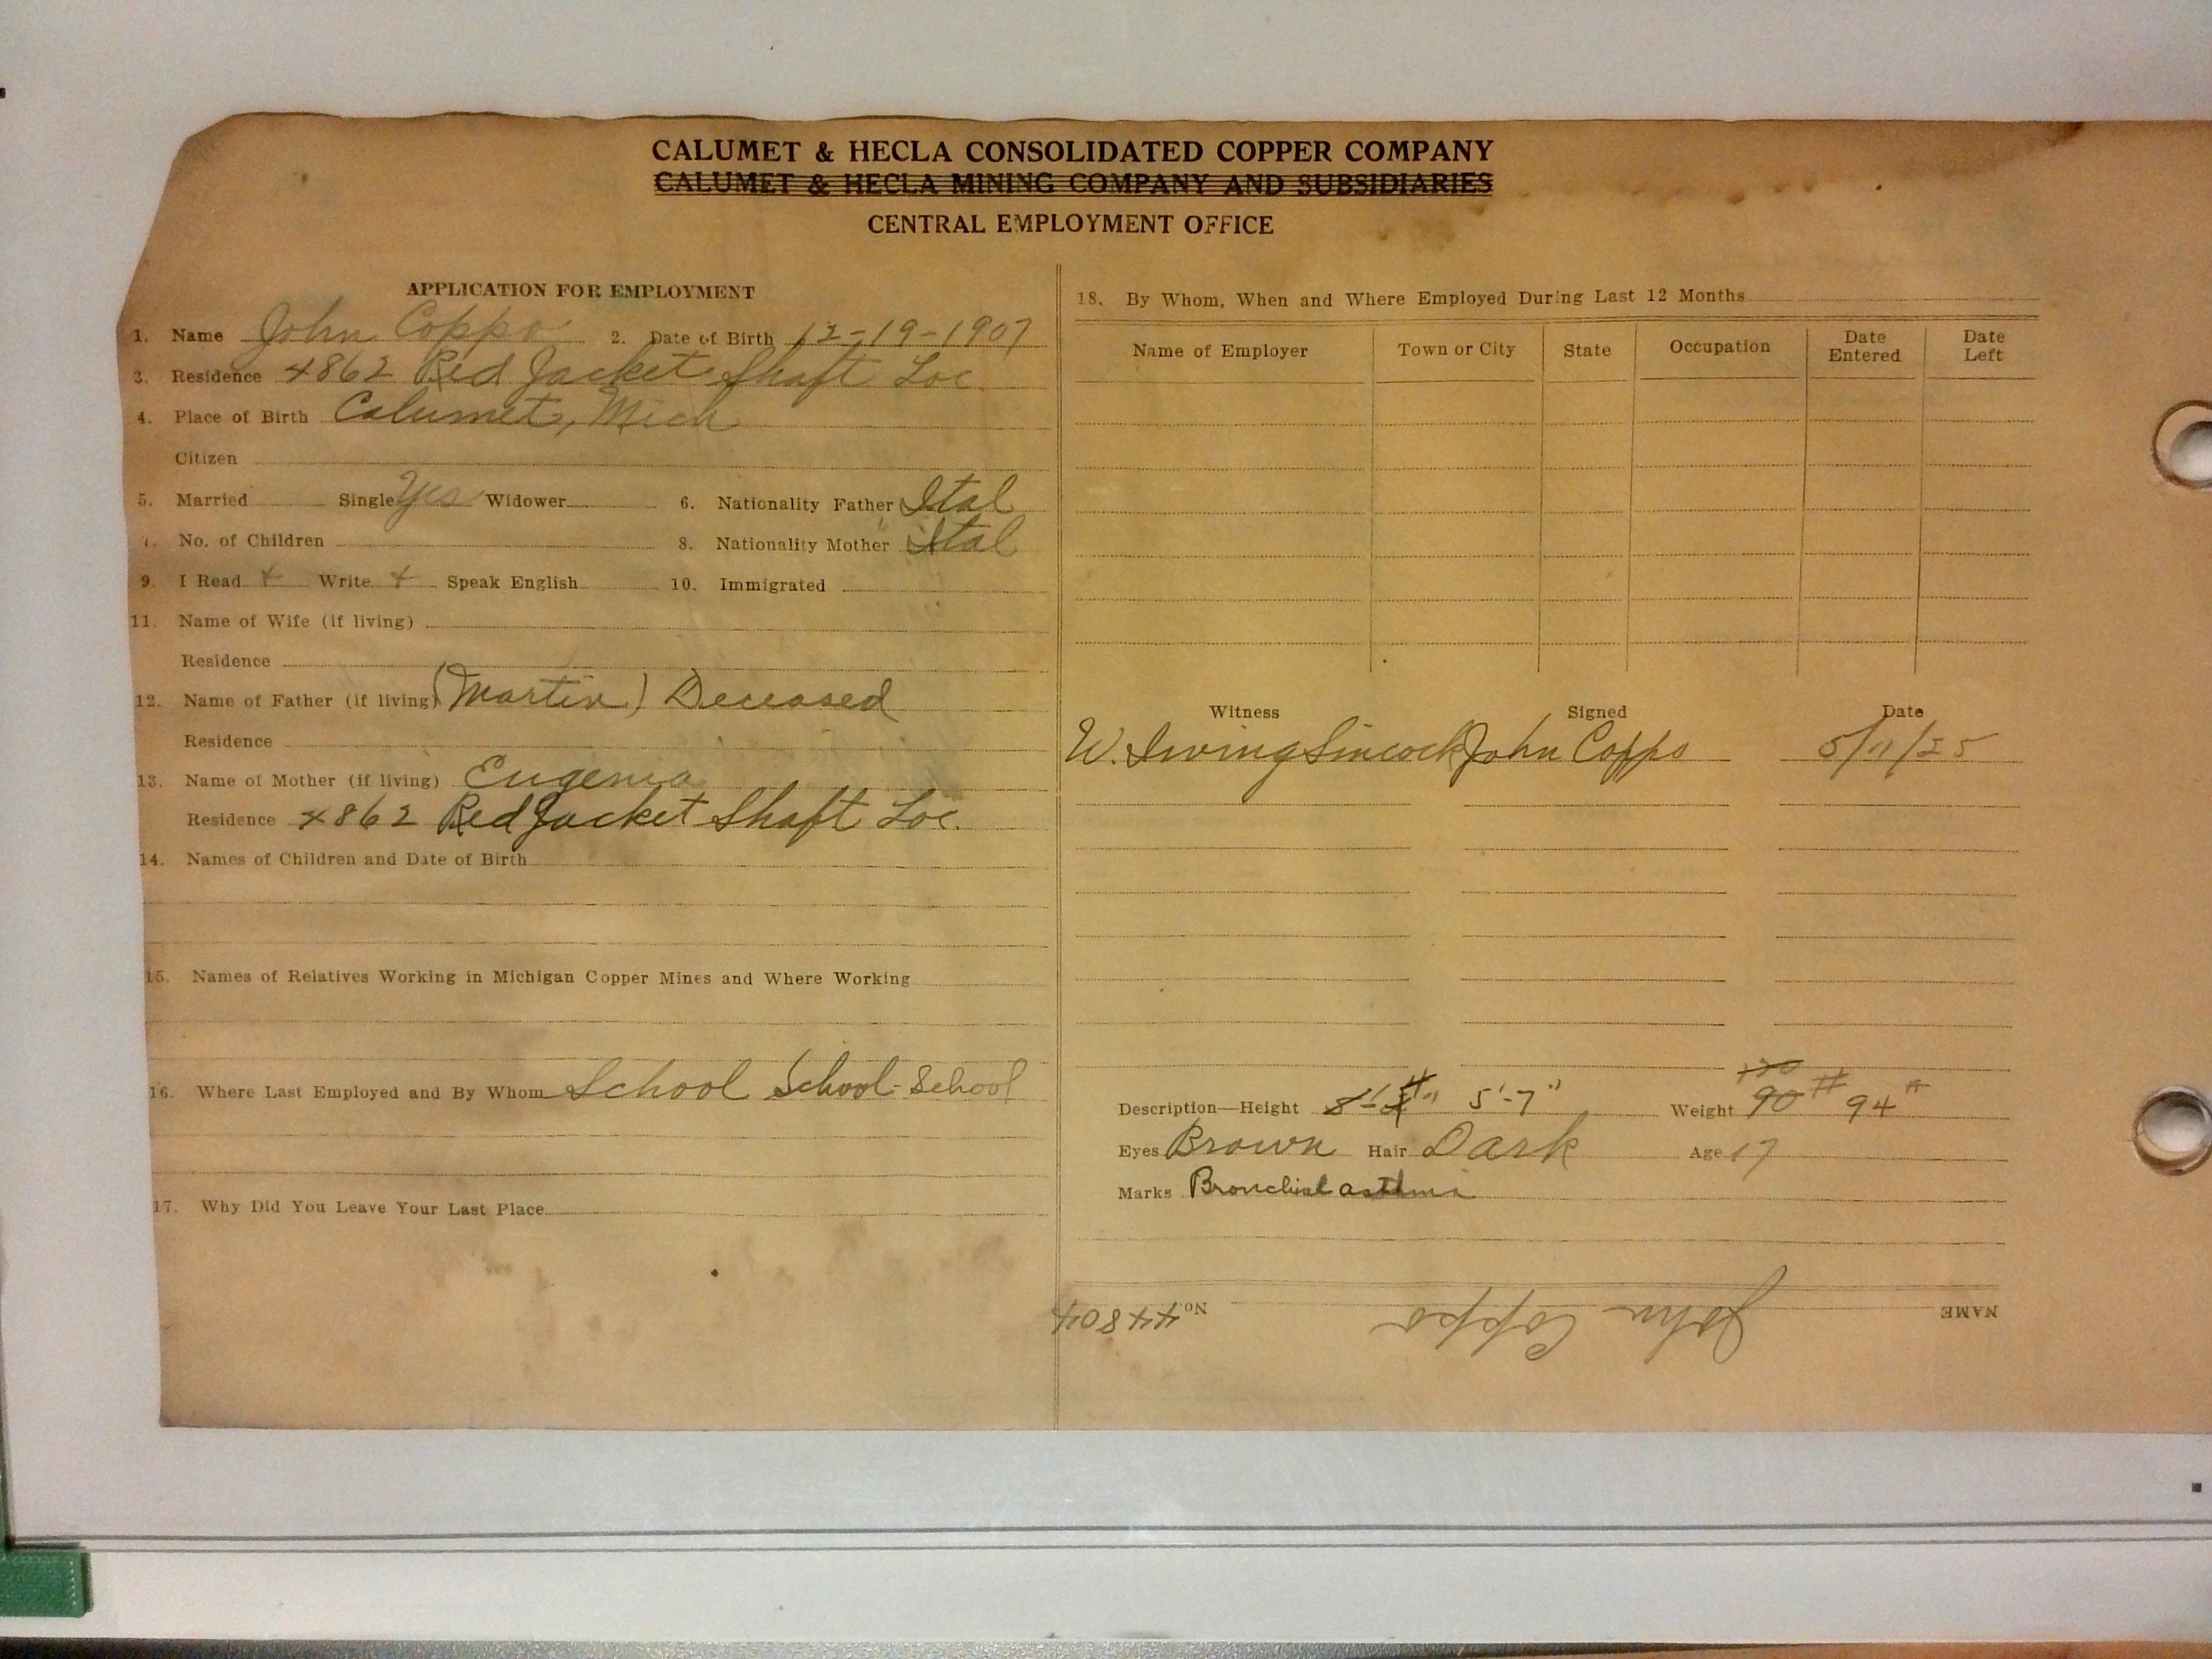 CALUMET & HECLA CONSOLIDATED COPPER COMPANY
CALUMET & HECLA MINING COMPANY AND SUBSIDIARIES
CENTRAL EMPLOYMENT OFFICE
APPLICATION FOR EMPLOYMENT
1. Name John Coppo 2. Date of Birth 12-19-1907
3. Residence 4862 Red Jacket Shaft Loc.
4. Place of Birth Calumet, Mich
Citizen
5. Married Single Yes Widower 6. Nationality Father Ital
7. No. of Children 8. Nationality Mother Ital
9. I Read + Write + Speak English 10. Immigrated
11. Name of Wife (if living)
Residence
12. Name of Father (if living) (Martin) Deceased
Residence
13. Name of Mother (if living) Eugenia
Residence 4862 Red Jacket Shaft Loc.
14. Names of Children and Date of Birth
15. Names of Relatives Working in Michigan Copper Mines and Where Working
16. Where Last Employed and By Whom School School-School
17. Why Did You Leave Your Last Place
18. By Whom, When and Where Employed During Last 12 Months
Name of Employer Town or City State Occupation Date Entered Date Left
Witness Signed Date
W. Irving Sincock John Coppo 5/11/25
Description—Height 5'-7" Weight 90# 94#
Eyes Brown Hair Dark Age 17
Marks Bronchial asthma
NAME John Coppo No. 44804